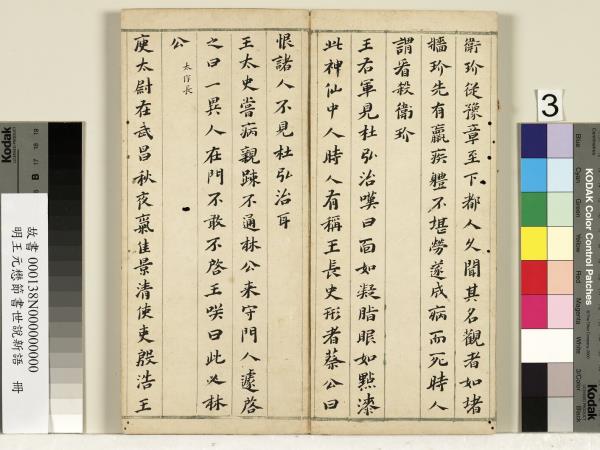 衛玠從豫章至下都人久聞其名觀者如堵
牆玠先有羸疾體不堪勞遂成病而死時人
謂看殺衛玠
王右軍見杜弘治嘆曰面如凝脂眼如點漆
此神仙中人時人有稱王長史形者蔡公曰
恨諸人不見杜弘治耳
王太史嘗病親踈不通林公来守門人遽啓
之曰一異人在門不敢不啓王咲曰此必林
公
庾太尉在武昌秋夜氣佳景清使吏殷浩王
故書 000138N000000000
明王元懋節書世說新語 冊
3
KODAK Color Control Patches
Blue
Cyan
Green
Yellow
Red
Magenta
White
3/Color
Black
Kodak
Kodak
B